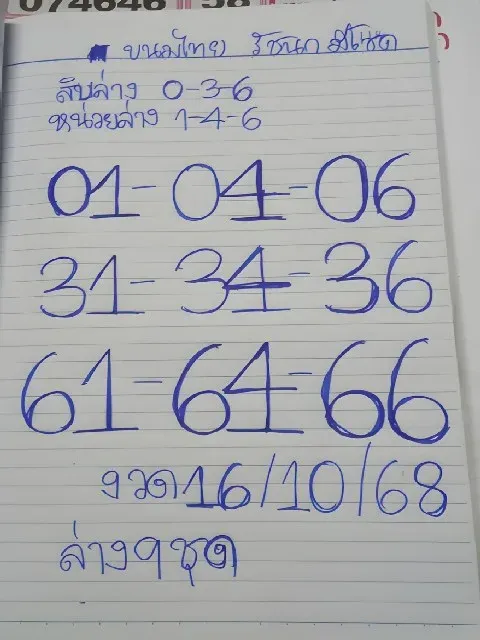 074646 58
ขนมไทย รัชนก มีโชค
สิบล่าง 0-3-6
หน่วยล่าง 1-4-6
01-04-06
31-34-36
61-64-66
งวด 16/10/68
ล่าง 9 ชุด